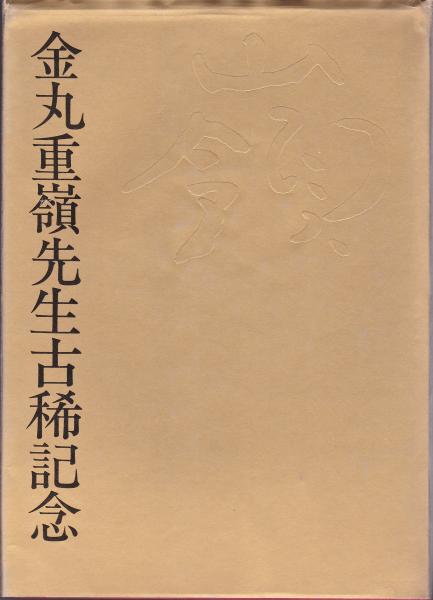 金丸重嶺先生古稀記念
嶺